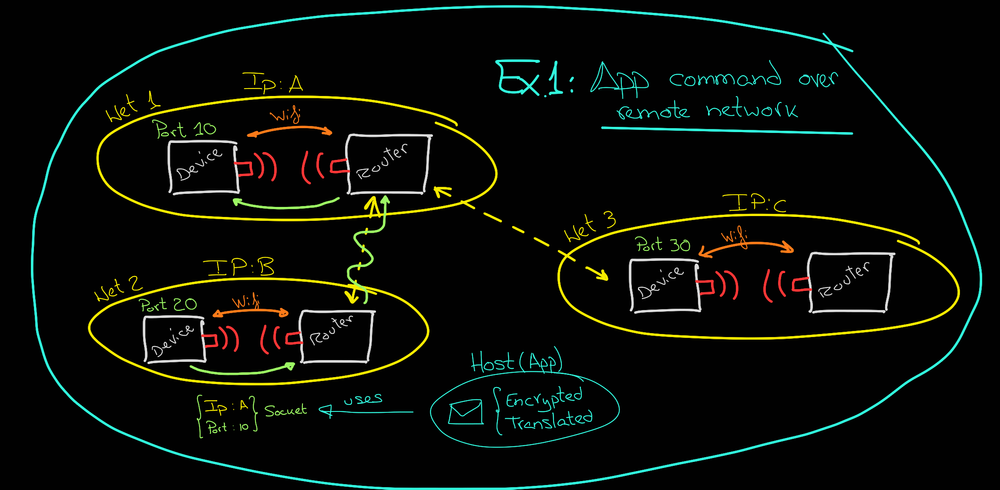 Ex.1: App command over
remote network
IP:A
Net 1
Wifi
Port 10
Device
Router
IP:C
Net 3
Wifi
Port 30
Device
Router
IP:B
Net 2
Wifi
Port 20
Device
Router
Host (App)
Encrypted
Translated
uses
Ip:A
Port:10
Socket